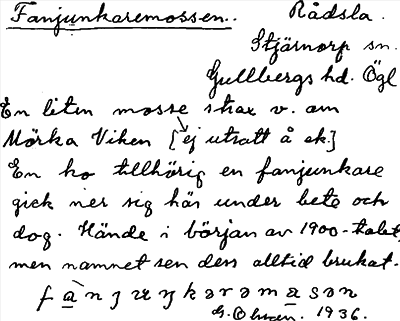 Fanjunkaremossen. Rådsla.
Stjärnorp sn.
Gullbergs hd. Ögl
En liten mosse strax v. om
Mörka Viken [ej utsatt å ek.]
En ko tillhörig en fanjunkare
gick ner sig här under bete och
dog. Hände i början av 1900-talet,
men namnet sen dess alltid brukat.
1936.